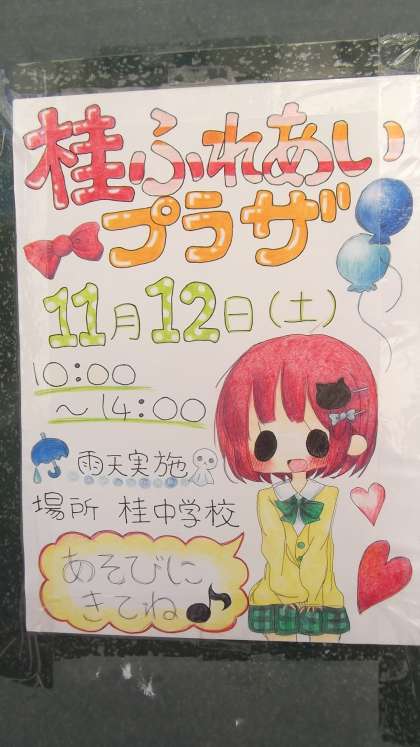 桂ふれあい
プラザ
11月12日(土)
10:00
～14:00
雨天実施
場所 桂中学校
あそびに
きてね♪